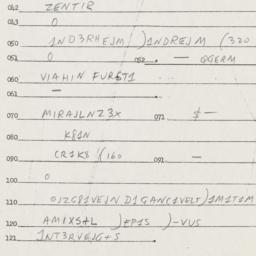 042 ZENTIR
043 0
050 1ND3RHEJM / )1NDREJM (320
051 0 052 — QGERM
060 VIAHIN FURST1
061 —
070 MIRAJLNZ3X 071 $ —
080 K81N
090 CR1K8 /(160 091 —
100 0
110 OJZG81VEJN D1GANC1VELT)1M1T1M
120 AM1XS+L )FP1S )-VUS
121 1NT3RVEJG+S